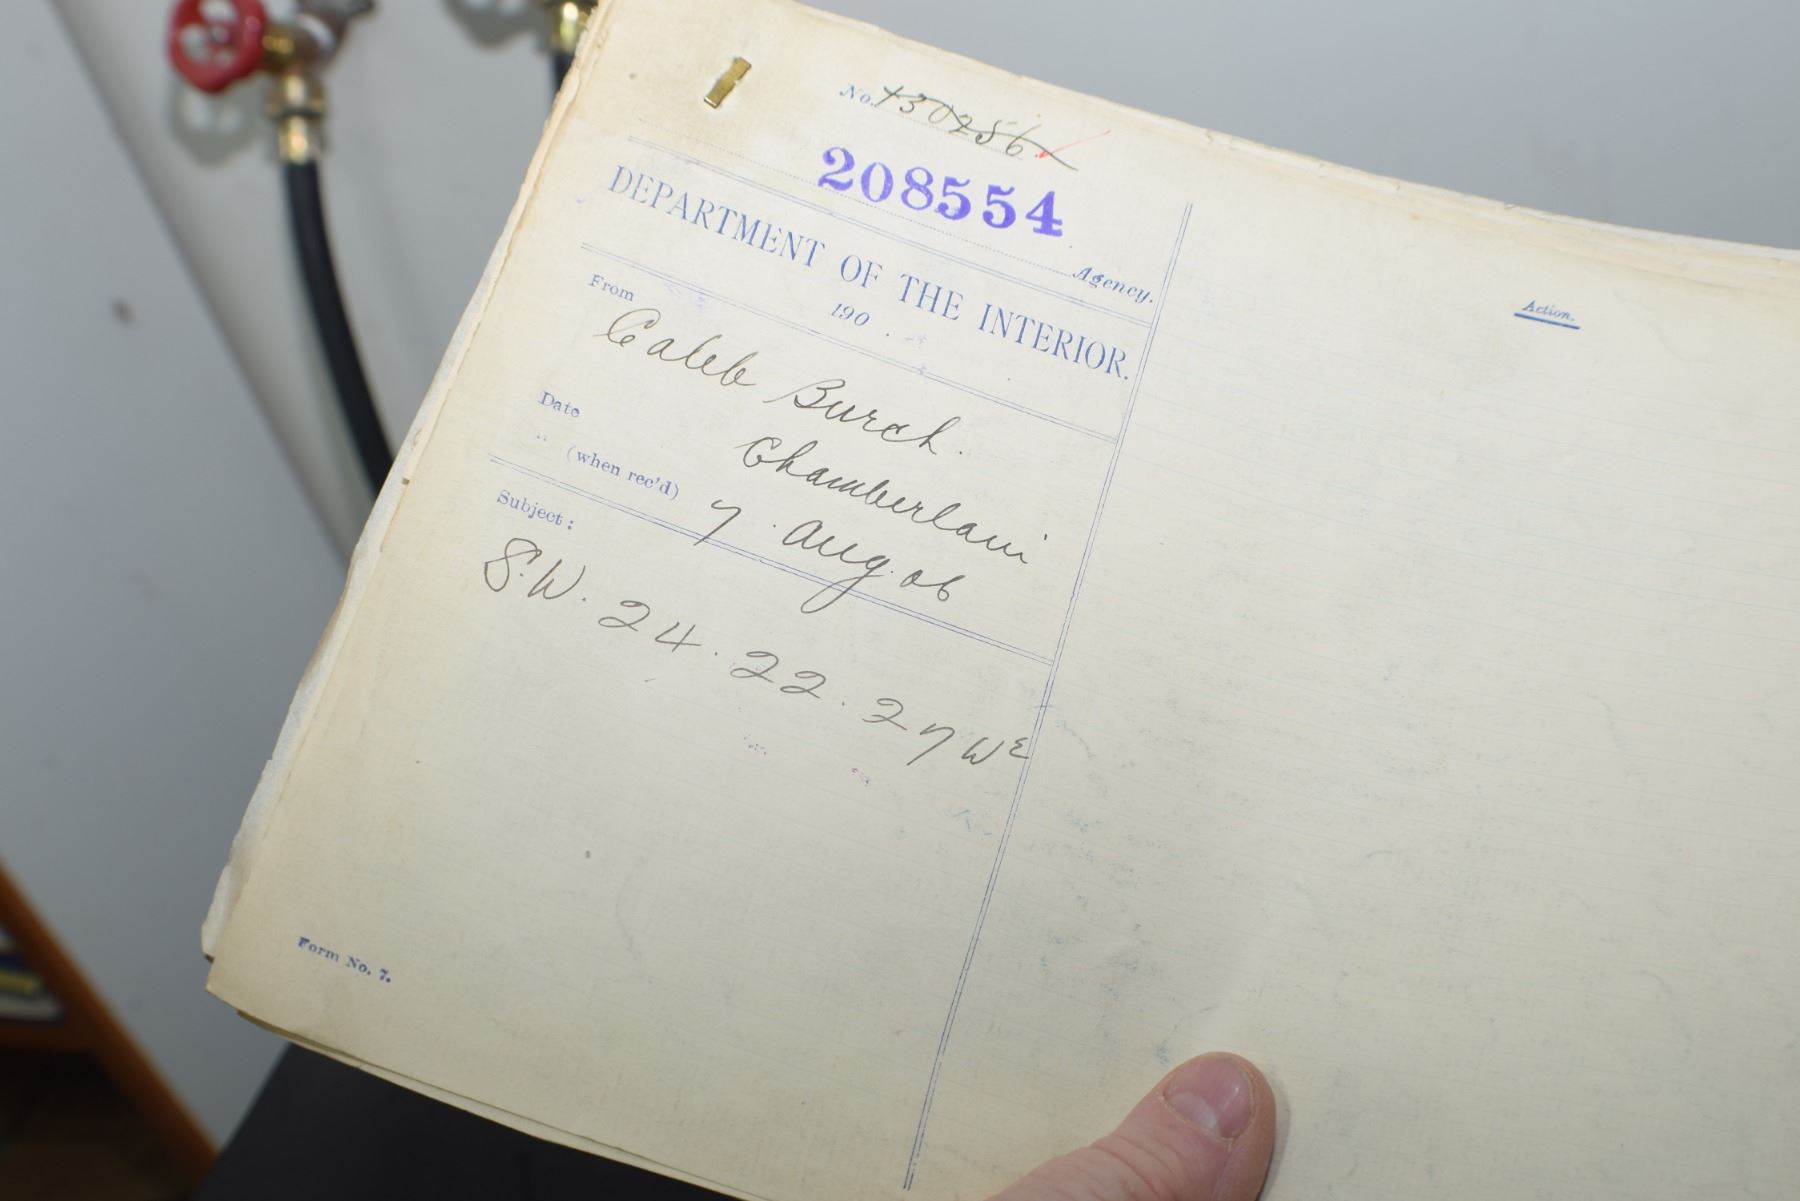 No. 130256
208554
Agency.
DEPARTMENT OF THE INTERIOR.
190 .
From
Caleb Burch.
Date
Chamberlain
" (when rec'd)
7. Aug. 06
Subject:
S.W. 24. 22. 27 WE
Action.
Form No. 7.